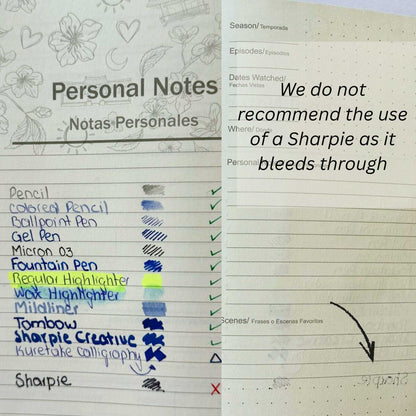 Personal Notes
Notas Personales
Pencil
Colored Pencil
Ballpoint Pen
Gel Pen
Micron 03
Fountain Pen
Regular Highlighter
Wax Highlighter
Mildliner
Tombow
Sharpie Creative
Kuretake Calligraphy
Sharpie
X
Season/ Temporada
Episodes/ Episodios
Dates Watched/
Fechas Vistas
We do not
recommend the use
Where/
of a Sharpie as it
Personal
bleeds through
Scenes/ Frases o Escenas Favoritas
Sharpie